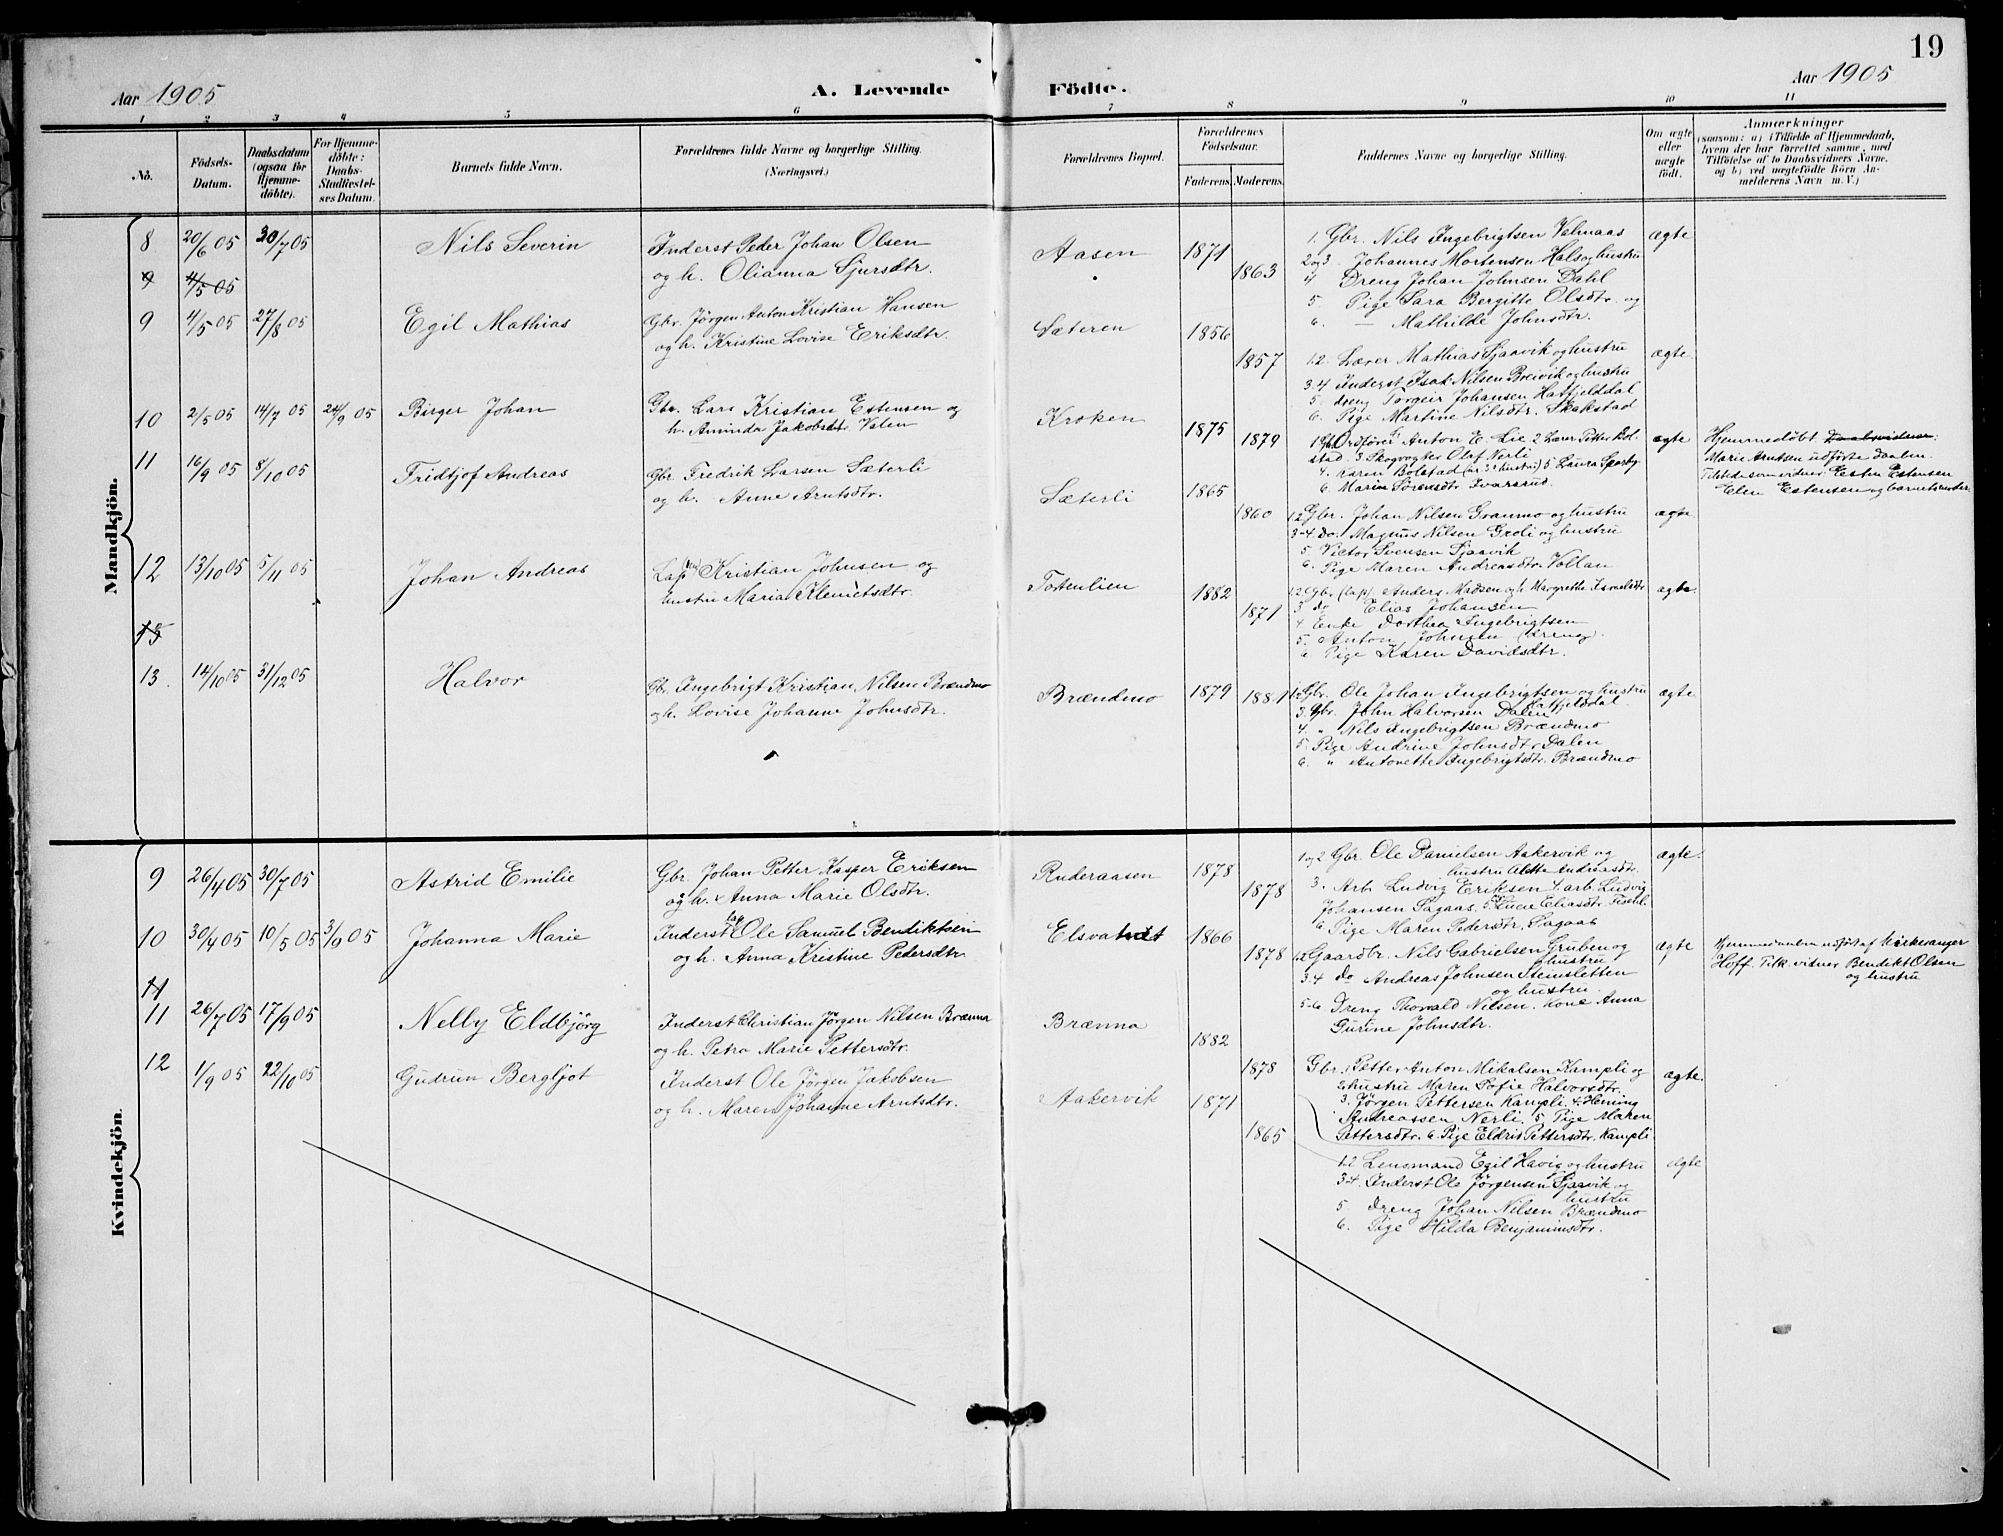 19
Aar 1905
A. Levende
Födte.
Aar 1905
1 2 3 4 5 6 7 8 9 10 11
No.
Födsels-
Datum.
Daabsdatum
(ogsaa for
Hjemme-
döbte).
For Hjemme-
döbte:
Daabs-
Stadfæstel-
ses Datum.
Barnets fulde Navn.
Forældrenes fulde Navne og borgerlige Stilling.
(Næringsvei.)
Forældrenes Bopæl.
Forældrenes
Födselsaar.
Faderens. Moderens.
Faddernes Navne og borgerlige Stilling.
Om ægte
eller
uægte
födt.
Anmærkninger
(saasom: a) i Tilfælde af Hjemmedaab,
hvem der har forrettet samme, med
Tilföielse af to Daabsvidners Navne,
og b) ved uægtefödte Börn An-
melderens Navn m. V.)
Mandkjön.
8 20/6 05 30/7 05 Nils Severin
Inderst Peder Johan Olsen
og h. Olianna Sjursdtr.
Aasen 1871 1863
1. Gbr. Nils Ingebrigtsen Valmaas
2 og 3 Johannes Mortensen Hals og hustru
4 Dreng Johan Johnsen Dahl
5 Pige Sara Bergitte Olsdtr. og
6. — Mathilde Johnsdtr.
ægte
9 4/5 05
9 4/5 05 27/8 05 Egil Mathias
Gbr. Jörgen Anton Kristian Hansen
og h. Kristine Lovise Eriksdtr.
Sæteren 1856 1857
1.2. Lærer Mathias Sjaavik og hustru
3.4 Inderst Isak Nilsen Breivik og hustru
5. dreng Torgeir Johansen Hatfjelddal
6. Pige Martine Nilsdtr. Skakstad
ægte
10 2/5 05 14/7 05 24/9 05 Birger Johan
Gbr. Lars Kristian Estensen og
h. Aminda Jakobsdtr Valen
Kroken 1875 1879
Ordförer Anton E. Lie 2 Lærer Petter Bol-
stad 3 Skogvogter Olaf Nerli
4. Karen Bolstad 5 Laura Sporby
6. Marie Sörensdtr. Ivarsrud.
ægte
Hjemmedöbt Daabsvidner:
Marie Arntsen udförte daaben.
Tilstede som vidner: Esten Estensen
Elen Estensen og barnets moder
11 16/9 05 8/10 05 Fridtjof Andreas
Gbr. Fredrik Larsen Sæterli
og h. Anne Arntsdtr.
Sæterli 1865 1860
1.2 Gbr. Johan Nilsen Granmo og hustru
3-4 do. Magnus Nilsen Groli og hustru
5. Victor Svensen Sjaavik
6. Pige Maren Andreasdtr. Vollan
ægte
12 13/10 05 5/11 05 Johan Andreas
Lap Kristian Johnsen og
hustru Maria Klemetsdtr.
Tortenlien 1882 1871
1.2 Gbr. (lap) Anders Madsen og h. Margrethe Zomoldtr
3 do Elias Johansen
4. Enke Dorthea Ingebrigtsen
5. Anton Johnsen (dreng).
6 Pige Karen Davidsdtr.
ægte.
13 14/10 05 31/12 05 Halvor
Gbr. Ingebrigt Kristian Nilsen Brændmo
og h. Lovise Johanne Johnsdtr.
Brændmo 1879 1881
1.2 Gbr. Ole Johan Ingebrigtsen og hustru
Hatfjelddal.
3. Gbr. John Halvorsen Dalen
4. " Nils Ingebrigtsen Brændmo
5. Pige Andrine Johnsdtr. Dalen
6. " Antonette Ingebrigtsdtr. Brændmo
ægte
Kvindekjön.
9 26/4 05 30/7 05 Astrid Emilie
Gbr. Johan Petter Kasper Eriksen
og h. Anna Marie Olsdtr.
Ruderaasen 1878 1878
1 og 2 Gbr. Ole Danielsen Aakervik og
hustru Alette Andreasdtr.
3. Arb. Ludvig Eriksen 4. arb. Ludvig
Johansen Sagaas 5. Lucie Eliasdtr.
6 Pige Maren Pedersdtr. Sagaas
ægte.
10 30/4 05 10/5 05 3/9 05 Johanna Marie
Inderst lap Ole Samuel Bendiktsen
og h. Anna Kristine Pedersdtr.
Elsvatnet 1866 1878
1.2 Gaardbr. Nils Gabrielsen Gruben og
hustru
3.4 do Andreas Johnsen Steinsletten
og hustru.
5-6 Dreng Thorvald Nilsen. Kone Anna
Gurine Johnsdtr.
ægte
Hjemmedaaben udfört af Kirkesanger
Hoff. Tilk. vidner Bendikt Olsen
og hustru
11
11 26/7 05 17/9 05 Nelly Eldbjörg
Inderst Christian Jörgen Nilsen Brænna
og h. Petra Marie Pettersdtr.
Brænna 1882 1878
Gbr. 1 Petter Anton Mikalsen Kampli og
2 hustru Maren Sofie Halvorsdtr.
3. Jörgen Pettersen Kampli 4. Henning
Andreassen Nerli. 5 Pige Maren
Pettersdtr. 6. Pige Eldrid Pettersdtr. Kampli
ægte.
12 1/9 05 22/10 05 Gudrun Bergljot
Inderst Ole Jörgen Jakobsen
og h. Maren Johanne Arntsdtr.
Aakervik 1871 1865
1.2 Lensmand Egil Havig og hustru
3.4. Inderst Ole Jörgensen Sjaavik og
hustru
5 Dreng Johan Nilsen Brændmo
6. Pige Hilda Benjaminsdtr.
ægte